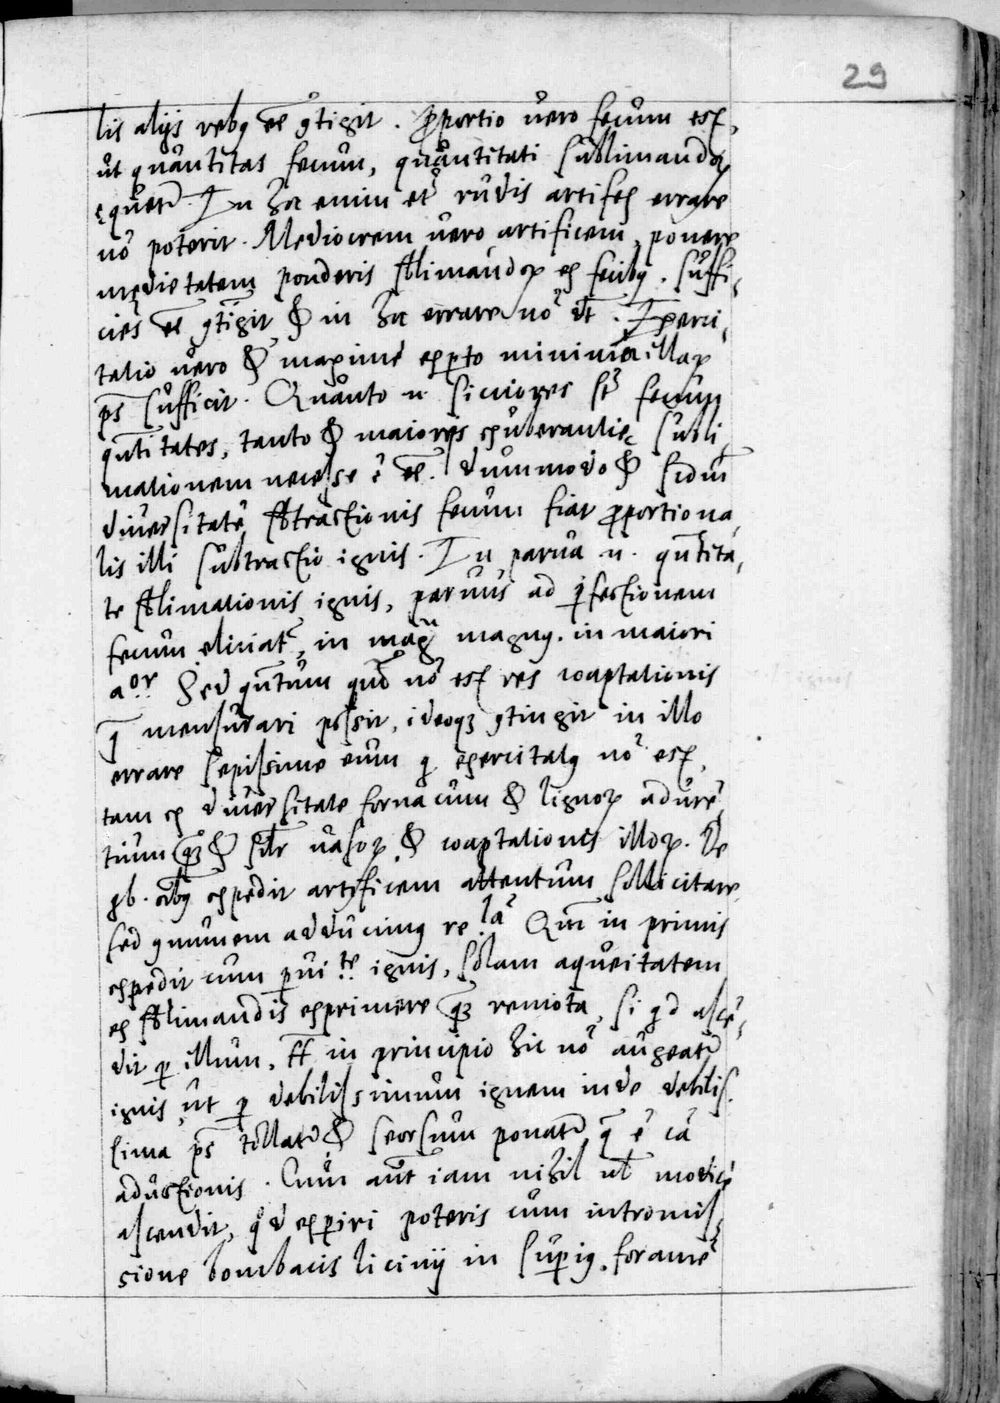 29
lis alijs rebꝰ eē ꝯtigit. Proportio vero fecum est,
ut quantitas fecum, quantitati sublimandoꝝ
ęquetʳ. In hac enim etʳ rudis artifex errare
nō poterit. Mediocrem vero artificem, ponere
medietatem ponderis sblimandoꝝ ex fecibꝰ. suffi-
ciēs eē ꝯtigit, & in hac errare nō
tatio vero & maxime exꝑto minima illaꝝ
ps sufficit. Quanto n. sicciores st fecum
qntitates, tanto & maioris exuberantie subli
mationem necesse ē eē. dummodo & scdm
diversitatē sbtractionis fecum fiat proportiona,
lis illi subtractio ignis. In parva n. qntita,
te sblimationis ignis, parvus ad ꝑfectionem
fecum eliciatʳ, in magna magnꝰ. in maiori
a.or Sed qntum quod nō est res coaptationis
q mensurari possit, ideoqꝫ ꝯtingit in illo
errare sepissime eum q exercitatꝰ nō est,
tam ex diversitate fornacum & lignoꝝ adurē
tium qꝫ & silr vasoꝝ & coaptationis illoꝝ. De
qb. oībꝰ expedit artificem attentum sollicitare
sed ꝯmunem adducimꝰ re.lā Qm in primis
expedit cum ꝑvi.te ignis, solam aqueitatem
ex sblimandis exprimere qꝫ remota, si qd ascē-
dit ꝑ illum, in principio hic nō augeatʳ
ignis ut ꝑ debilissimum ignem inde debilis-
sima ps tollatʳ & seorsum ponatʳ q ē cā
adustionis. Cum aut iam nihil ul modice
ascendit, qd exꝑiri poteris cum intromis,
sione bombacis licinij in suꝑiꝰ. foramē